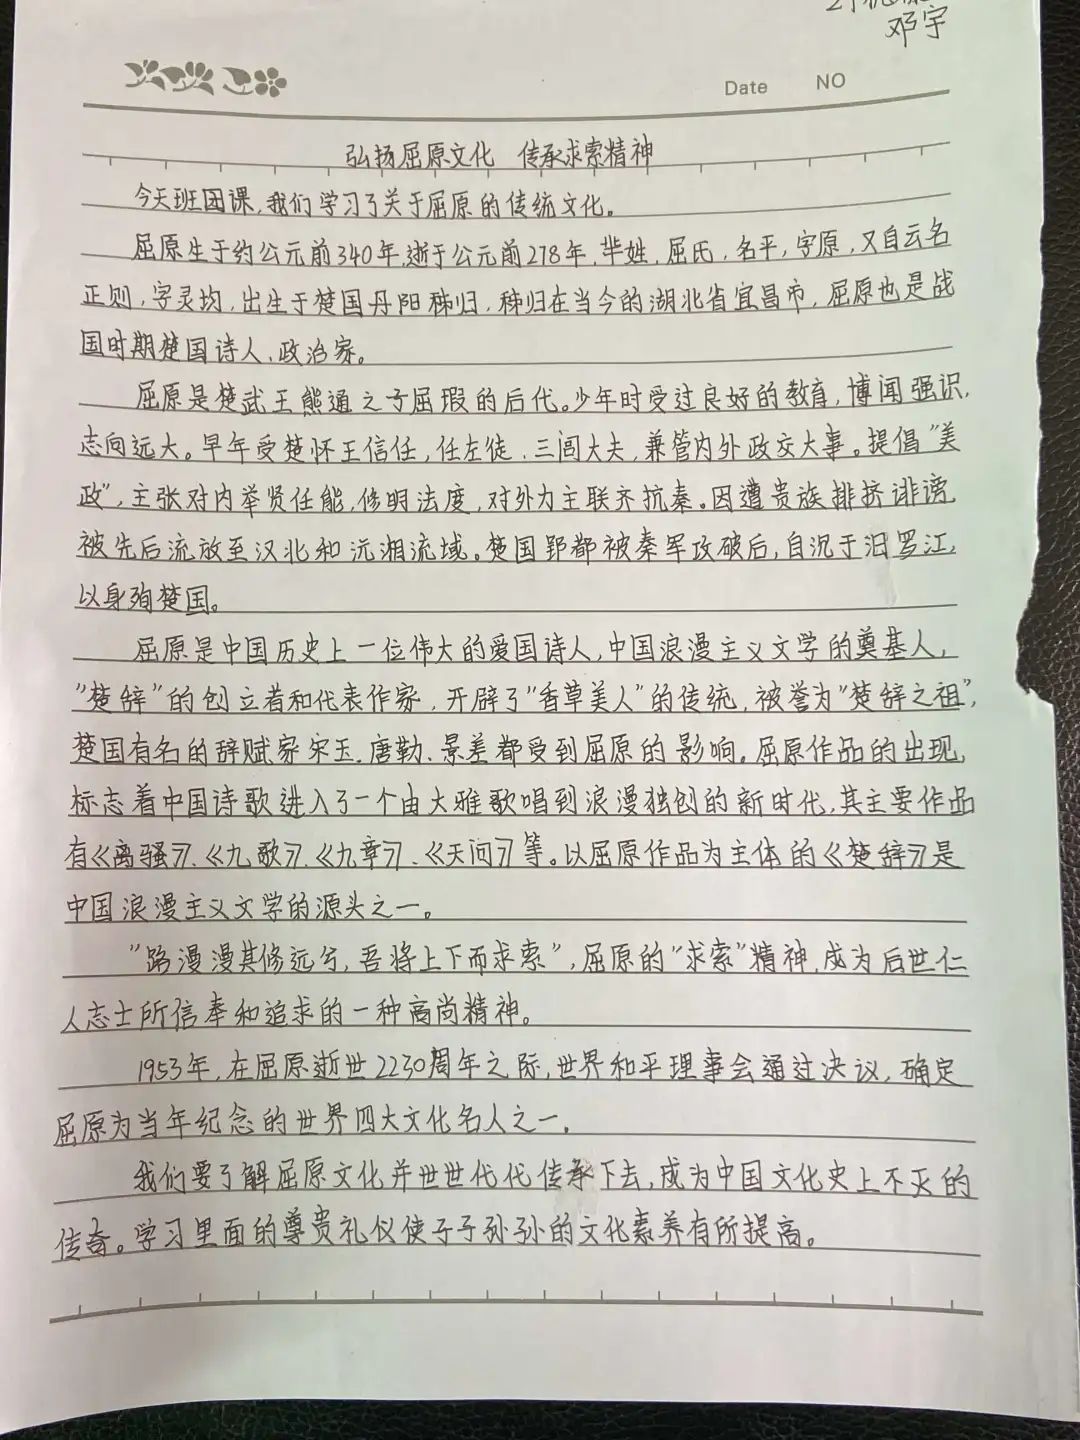 邓宇
Date NO
弘扬屈原文化 传承求索精神
今天班团课,我们学习了关于屈原的传统文化。
屈原生于约公元前340年,逝于公元前278年,芈姓,屈氏,名平,字原,又自云名
正则,字灵均,出生于楚国丹阳秭归,秭归在当今的湖北省宜昌市,屈原也是战
国时期楚国诗人、政治家。
屈原是楚武王熊通之子屈瑕的后代。少年时受过良好的教育,博闻强识,
志向远大。早年受楚怀王信任,任左徒、三闾大夫,兼管内外政交大事。提倡“美
政”,主张对内举贤任能,修明法度,对外力主联齐抗秦。因遭贵族排挤诽谤,
被先后流放至汉北和沅湘流域。楚国郢都被秦军攻破后,自沉于汨罗江,
以身殉楚国。
屈原是中国历史上一位伟大的爱国诗人,中国浪漫主义文学的奠基人,
“楚辞”的创立者和代表作家,开辟了“香草美人”的传统,被誉为“楚辞之祖”,
楚国有名的辞赋家宋玉、唐勒、景差都受到屈原的影响。屈原作品的出现,
标志着中国诗歌进入了一个由大雅歌唱到浪漫独创的新时代,其主要作品
有《离骚》、《九歌》、《九章》、《天问》等。以屈原作品为主体的《楚辞》是
中国浪漫主义文学的源头之一。
“路漫漫其修远兮,吾将上下而求索”,屈原的“求索”精神,成为后世仁
人志士所信奉和追求的一种高尚精神。
1953年,在屈原逝世2230周年之际,世界和平理事会通过决议,确定
屈原为当年纪念的世界四大文化名人之一。
我们要了解屈原文化并世世代代传承下去,成为中国文化史上不灭的
传奇。学习里面的尊贵礼仪使子子孙孙的文化素养有所提高。